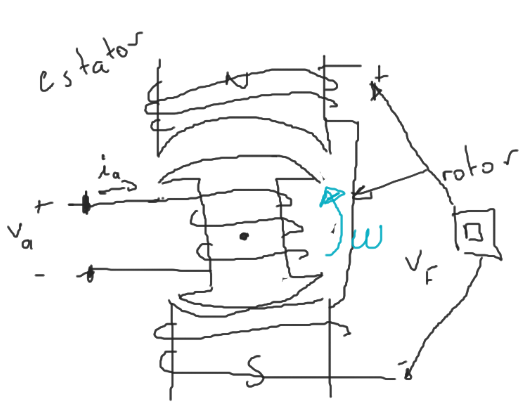 estator
N
+
ia
rotor
+
va
ω
-
VF
S
-